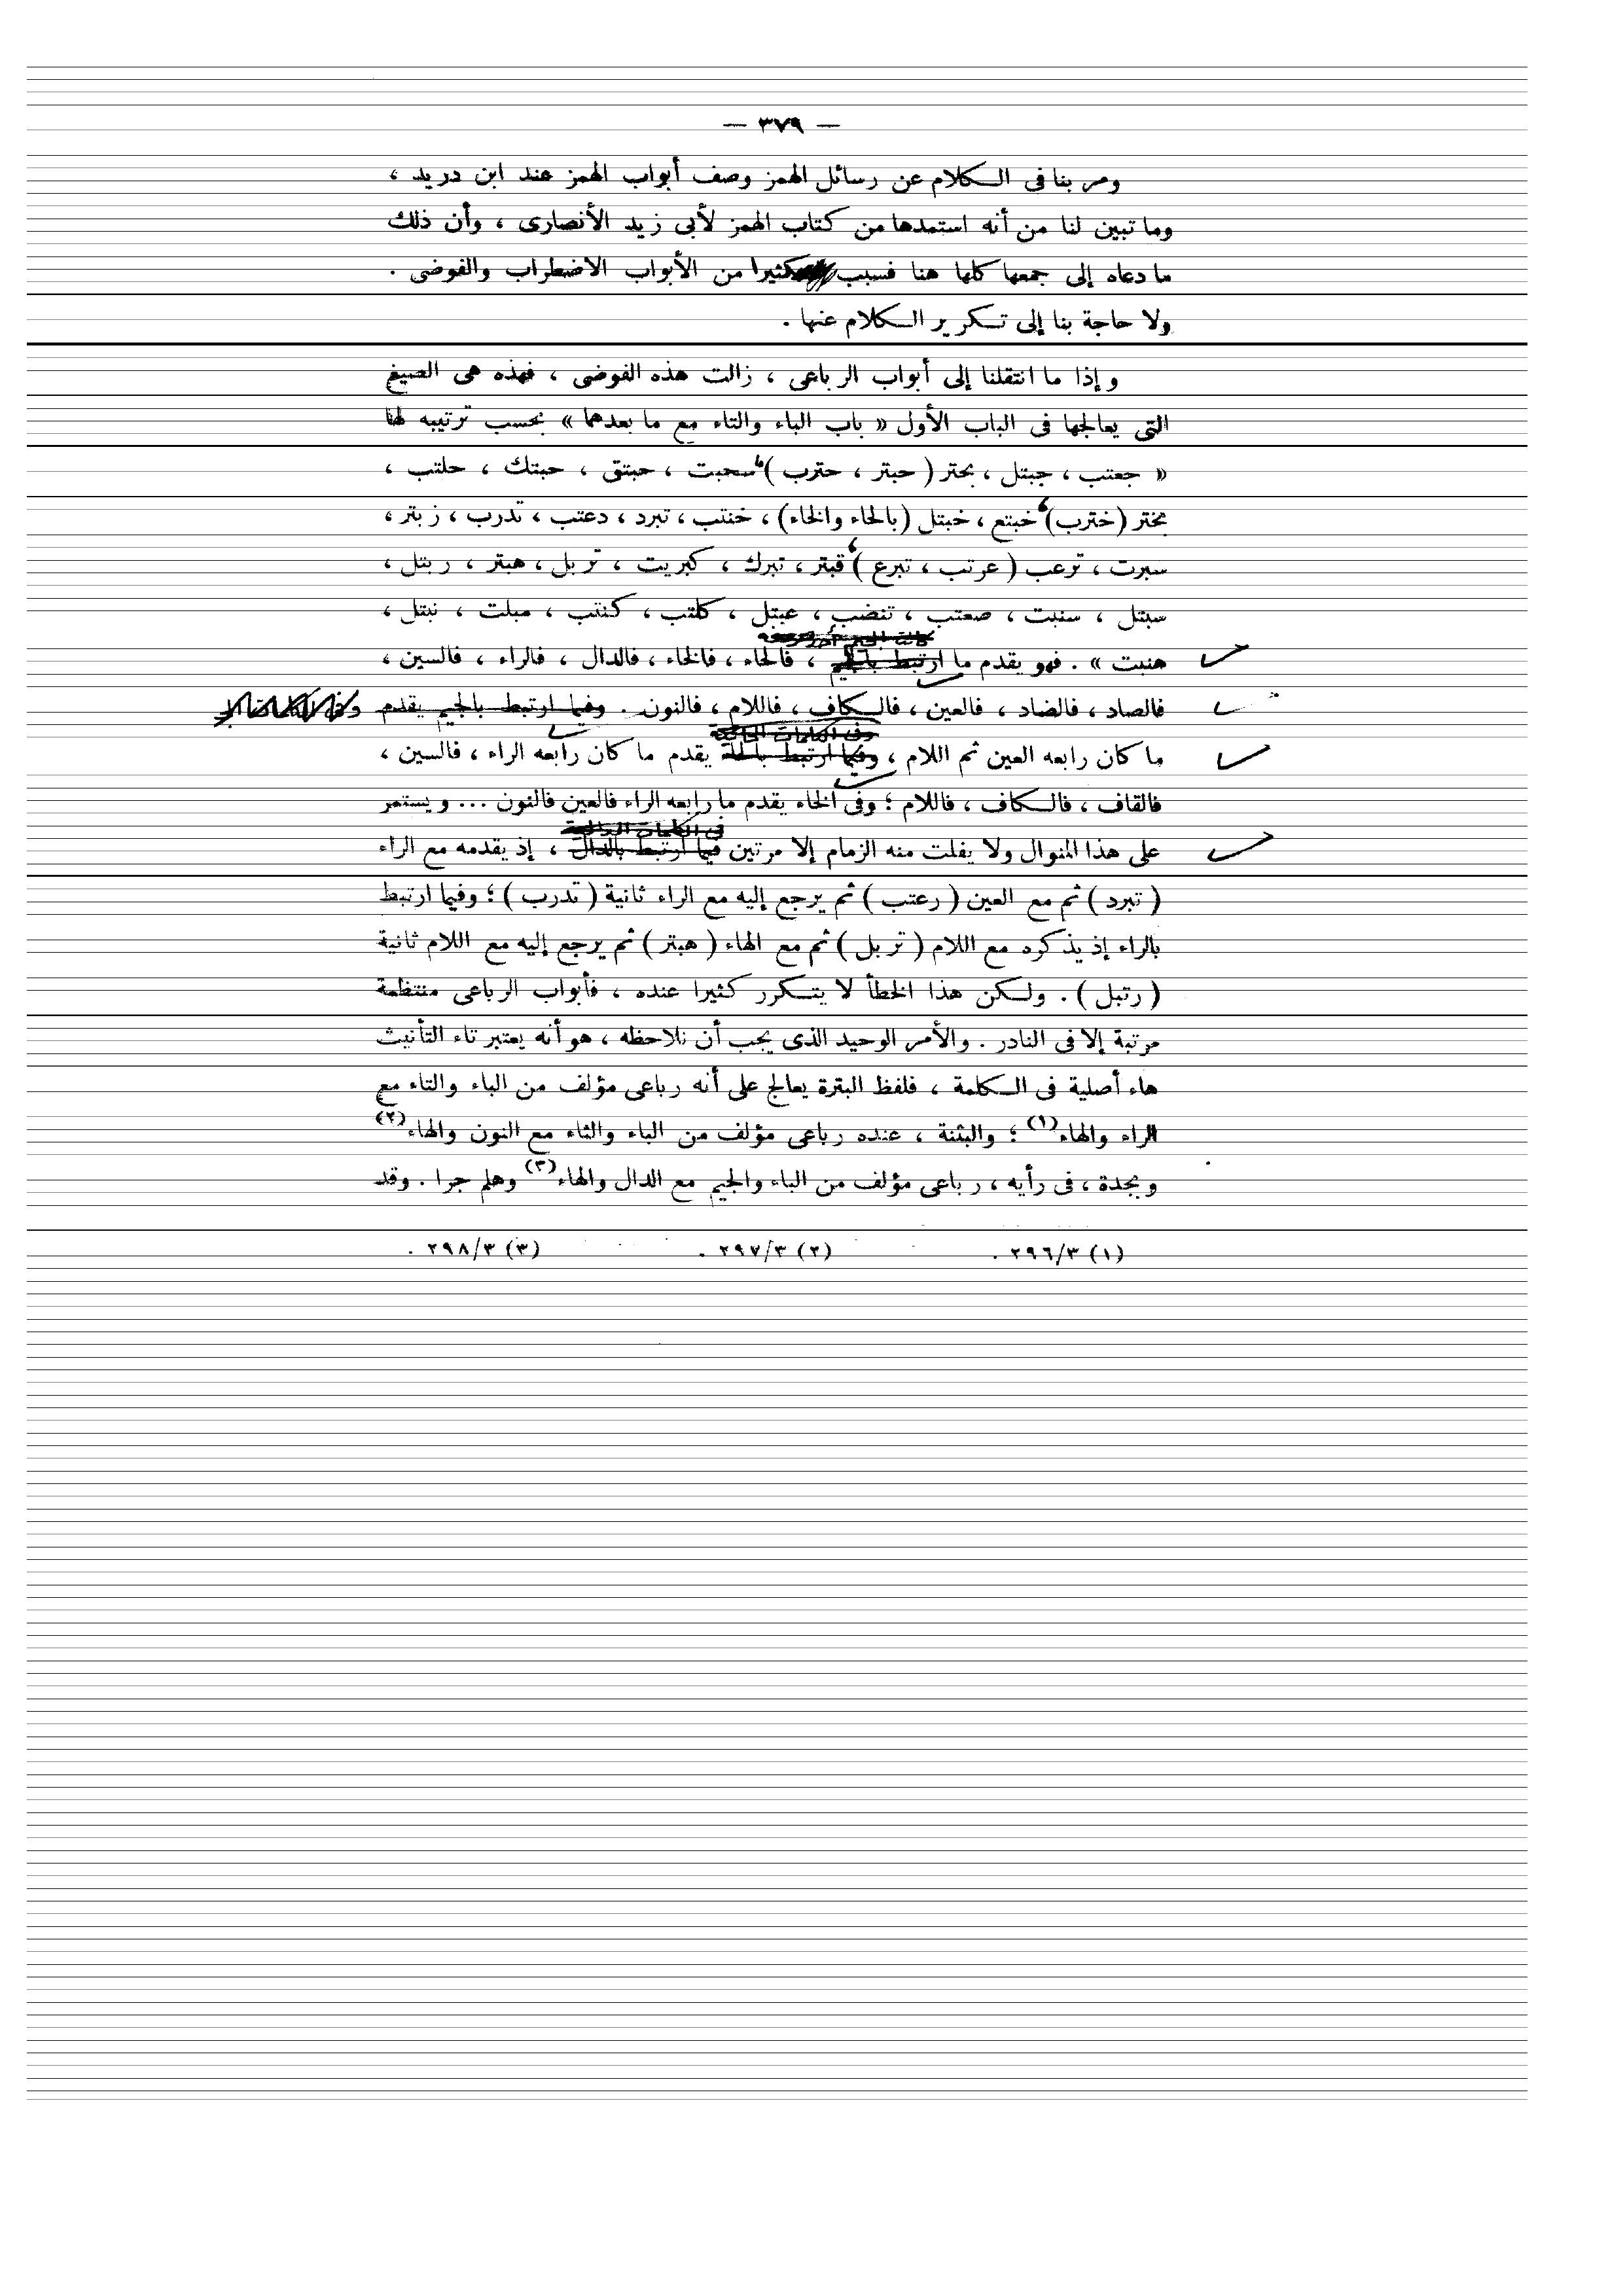 — ٣٧٩ —
ومر بنا فى الكلام عن رسائل الهمز وصف أبواب الهمز عند ابن دريد ،
وما تبين لنا من أنه استمدها من كتاب الهمز لأبى زيد الأنصارى ، وأن ذلك
ما دعاه إلى جمعها كلها هنا فسبب كثيرا من الأبواب الاضطراب والفوضى .
ولا حاجة بنا إلى تكرير الكلام عنها .
وإذا ما انتقلنا إلى أبواب الرباعى ، زالت هذه الفوضى ، فهذه هى الصيغ
التى يعالجها فى الباب الأول « باب الباء والتاء مع ما بعدهما » بحسب ترتيبه لها
« جعتب ، جبتل ، بحتر ( حبتر ، حترب ) ، سحبت ، حبتق ، حبتك ، حلتب ،
بختر (خترب) ، خبتع ، خبتل (بالحاء والخاء) ، خنتب ، تبرد ، دعتب ، تدرب ، زبتر ،
سبرت ، ترعب ( عرتب ، تبرع ) ، قبتر ، تبرك ، كبريت ، تربل ، هبتر ، ربتل ،
سبتل ، سنبت ، صعتب ، تنضب ، عبتل ، كلتب ، كنتب ، مبلت ، نبتل ،
هنبت » . فهو يقدم ما ارتبط بالجيم ، فالحاء ، فالخاء ، فالدال ، فالراء ، فالسين ،
فالصاد ، فالضاد ، فالعين ، فالكاف ، فاللام ، فالنون . وفيما ارتبط بالجيم يقدم
ما كان رابعه العين ثم اللام ، وفيما ارتبط بالحاء يقدم ما كان رابعه الراء ، فالسين ،
فالقاف ، فالكاف ، فاللام ؛ وفى الخاء يقدم ما رابعه الراء فالعين فالنون ... ويستمر
على هذا المنوال ولا يفلت منه الزمام إلا مرتين فيما ارتبط بالدال ، إذ يقدمه مع الراء
( تبرد ) ثم مع العين ( رعتب ) ثم يرجع إليه مع الراء ثانية ( تدرب ) ؛ وفيما ارتبط
بالراء إذ يذكره مع اللام ( تربل ) ثم مع الهاء ( هبتر ) ثم يرجع إليه مع اللام ثانية
( رتبل ) . ولكن هذا الخطأ لا يتكرر كثيرا عنده ، فأبواب الرباعى منتظمة
مرتبة إلا فى النادر . والأمر الوحيد الذى يجب أن نلاحظه ، هو أنه يعتبر تاء التأنيث
هاء أصلية فى الكلمة ، فلفظ البترة يعالج على أنه رباعى مؤلف من الباء والتاء مع
الراء والهاء (١) ؛ والبثنة ، عنده رباعى مؤلف من الباء والثاء مع النون والهاء (٢)
وبجدة ، فى رأيه ، رباعى مؤلف من الباء والجيم مع الدال والهاء (٣) وهلم جرا . وقد
(١) ٢٩٦/٣ . (٢) ٢٩٧/٣ . (٣) ٢٩٨/٣ .